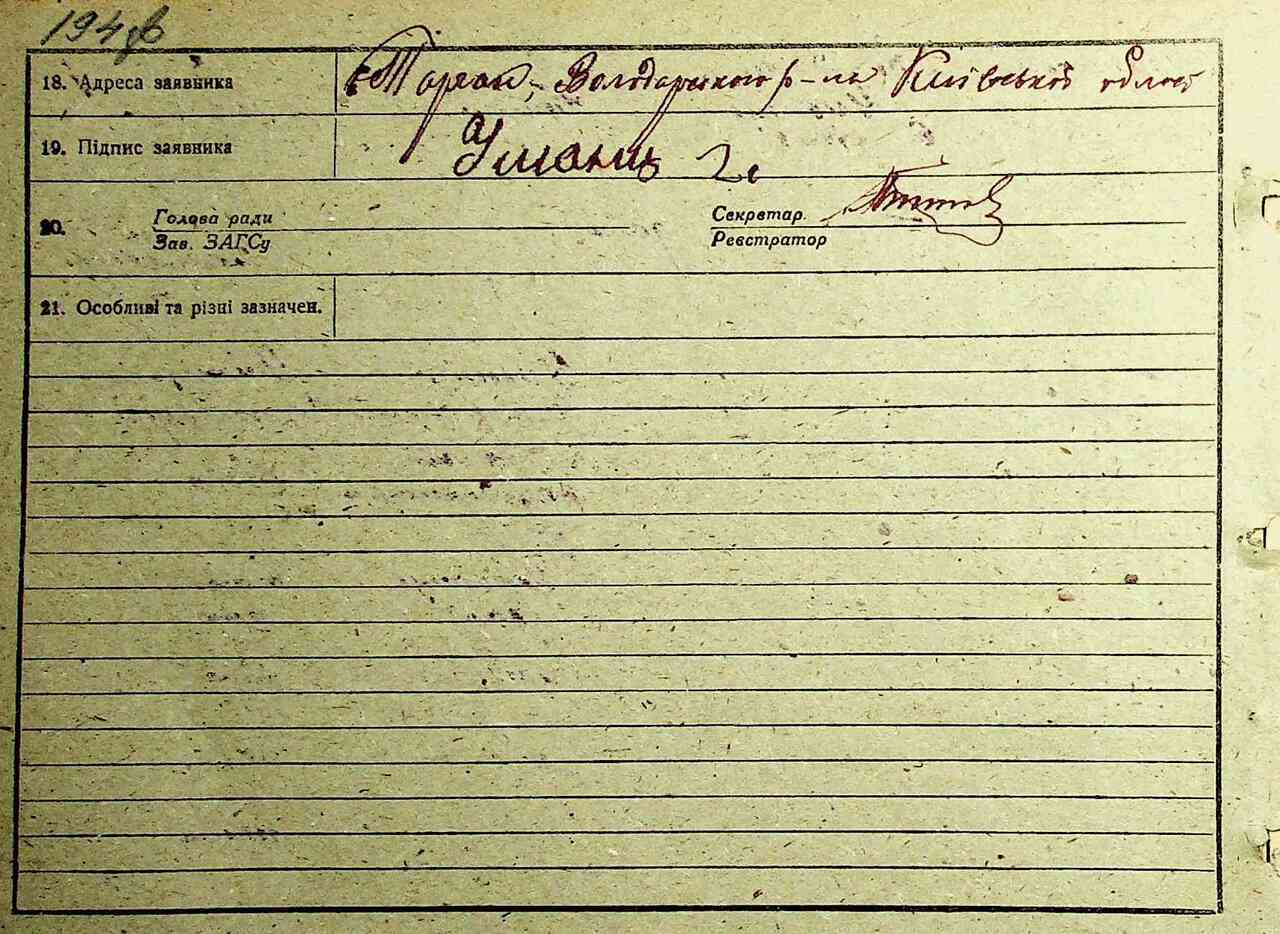 194
18. Адреса заявника с Торган, Володарського р-на Київської област
19. Підпис заявника Уманець
20. Голова ради Секретар
Зав. ЗАГСу Реєстратор
21. Особливі та різні зазначен.